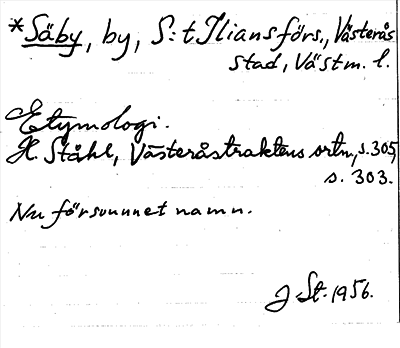 *Säby, by, S:t Ilians förs., Västerås
stad, Västm. l.
Etymologi.
H. Ståhl, Västeråstraktens ortn, s. 305,
s. 303.
Nu försvunnet namn.
J St. 1956.